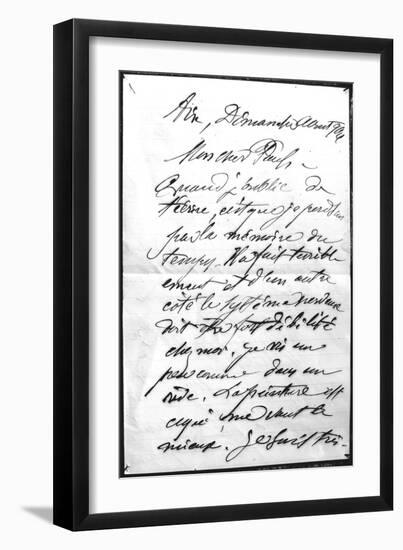 Aix, Dimanche Aout
Mon cher Paul -
Quand j'oublie de
t'écrire, c'est que je perds un
peu la mémoire du
temps. Il a fait terrible
ement et d'un autre
côté le système nerveux
doit être fort débilité
chez moi, je vis un
peu comme dans un
vide. La peinture est
ce qui me vaut le
mieux. Je suis très-